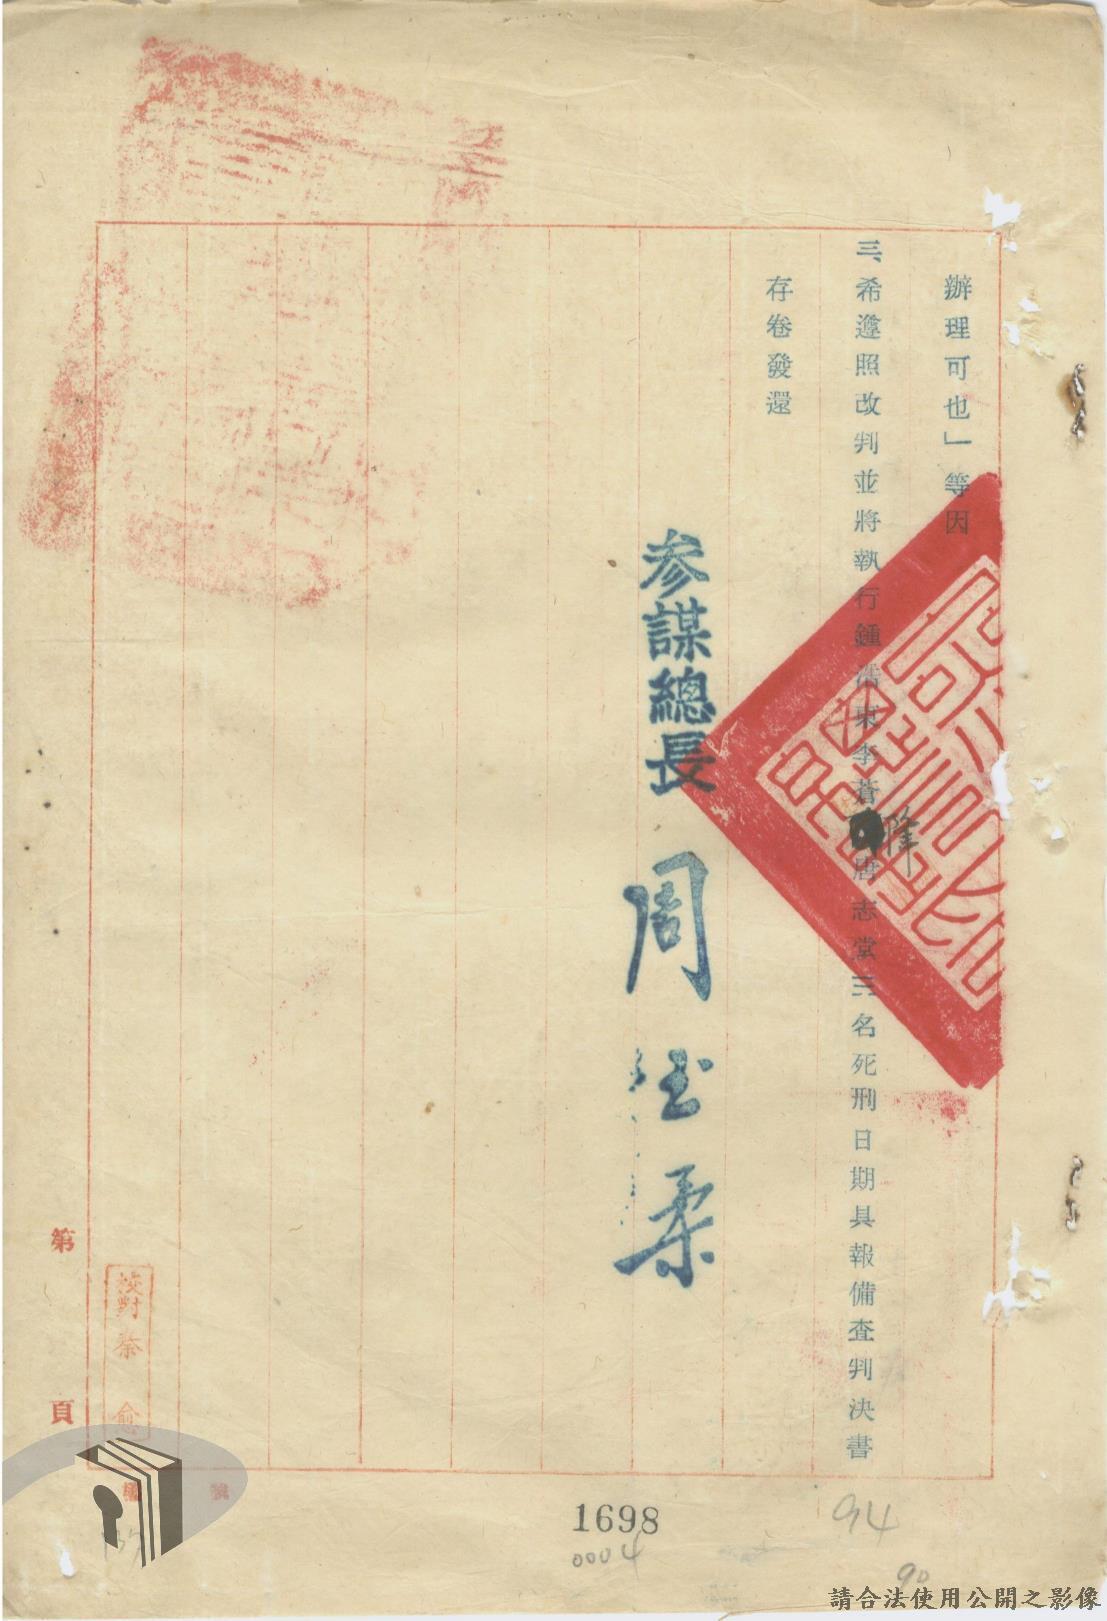 辦理可也」等因
三、希遵照改判並將執行鍾浩東李蒼降唐志堂三名死刑日期具報備查判決書
存卷發還
参謀總長 周至柔
校對 蔡
第 頁
1698
0004
94
90
請合法使用公開之影像